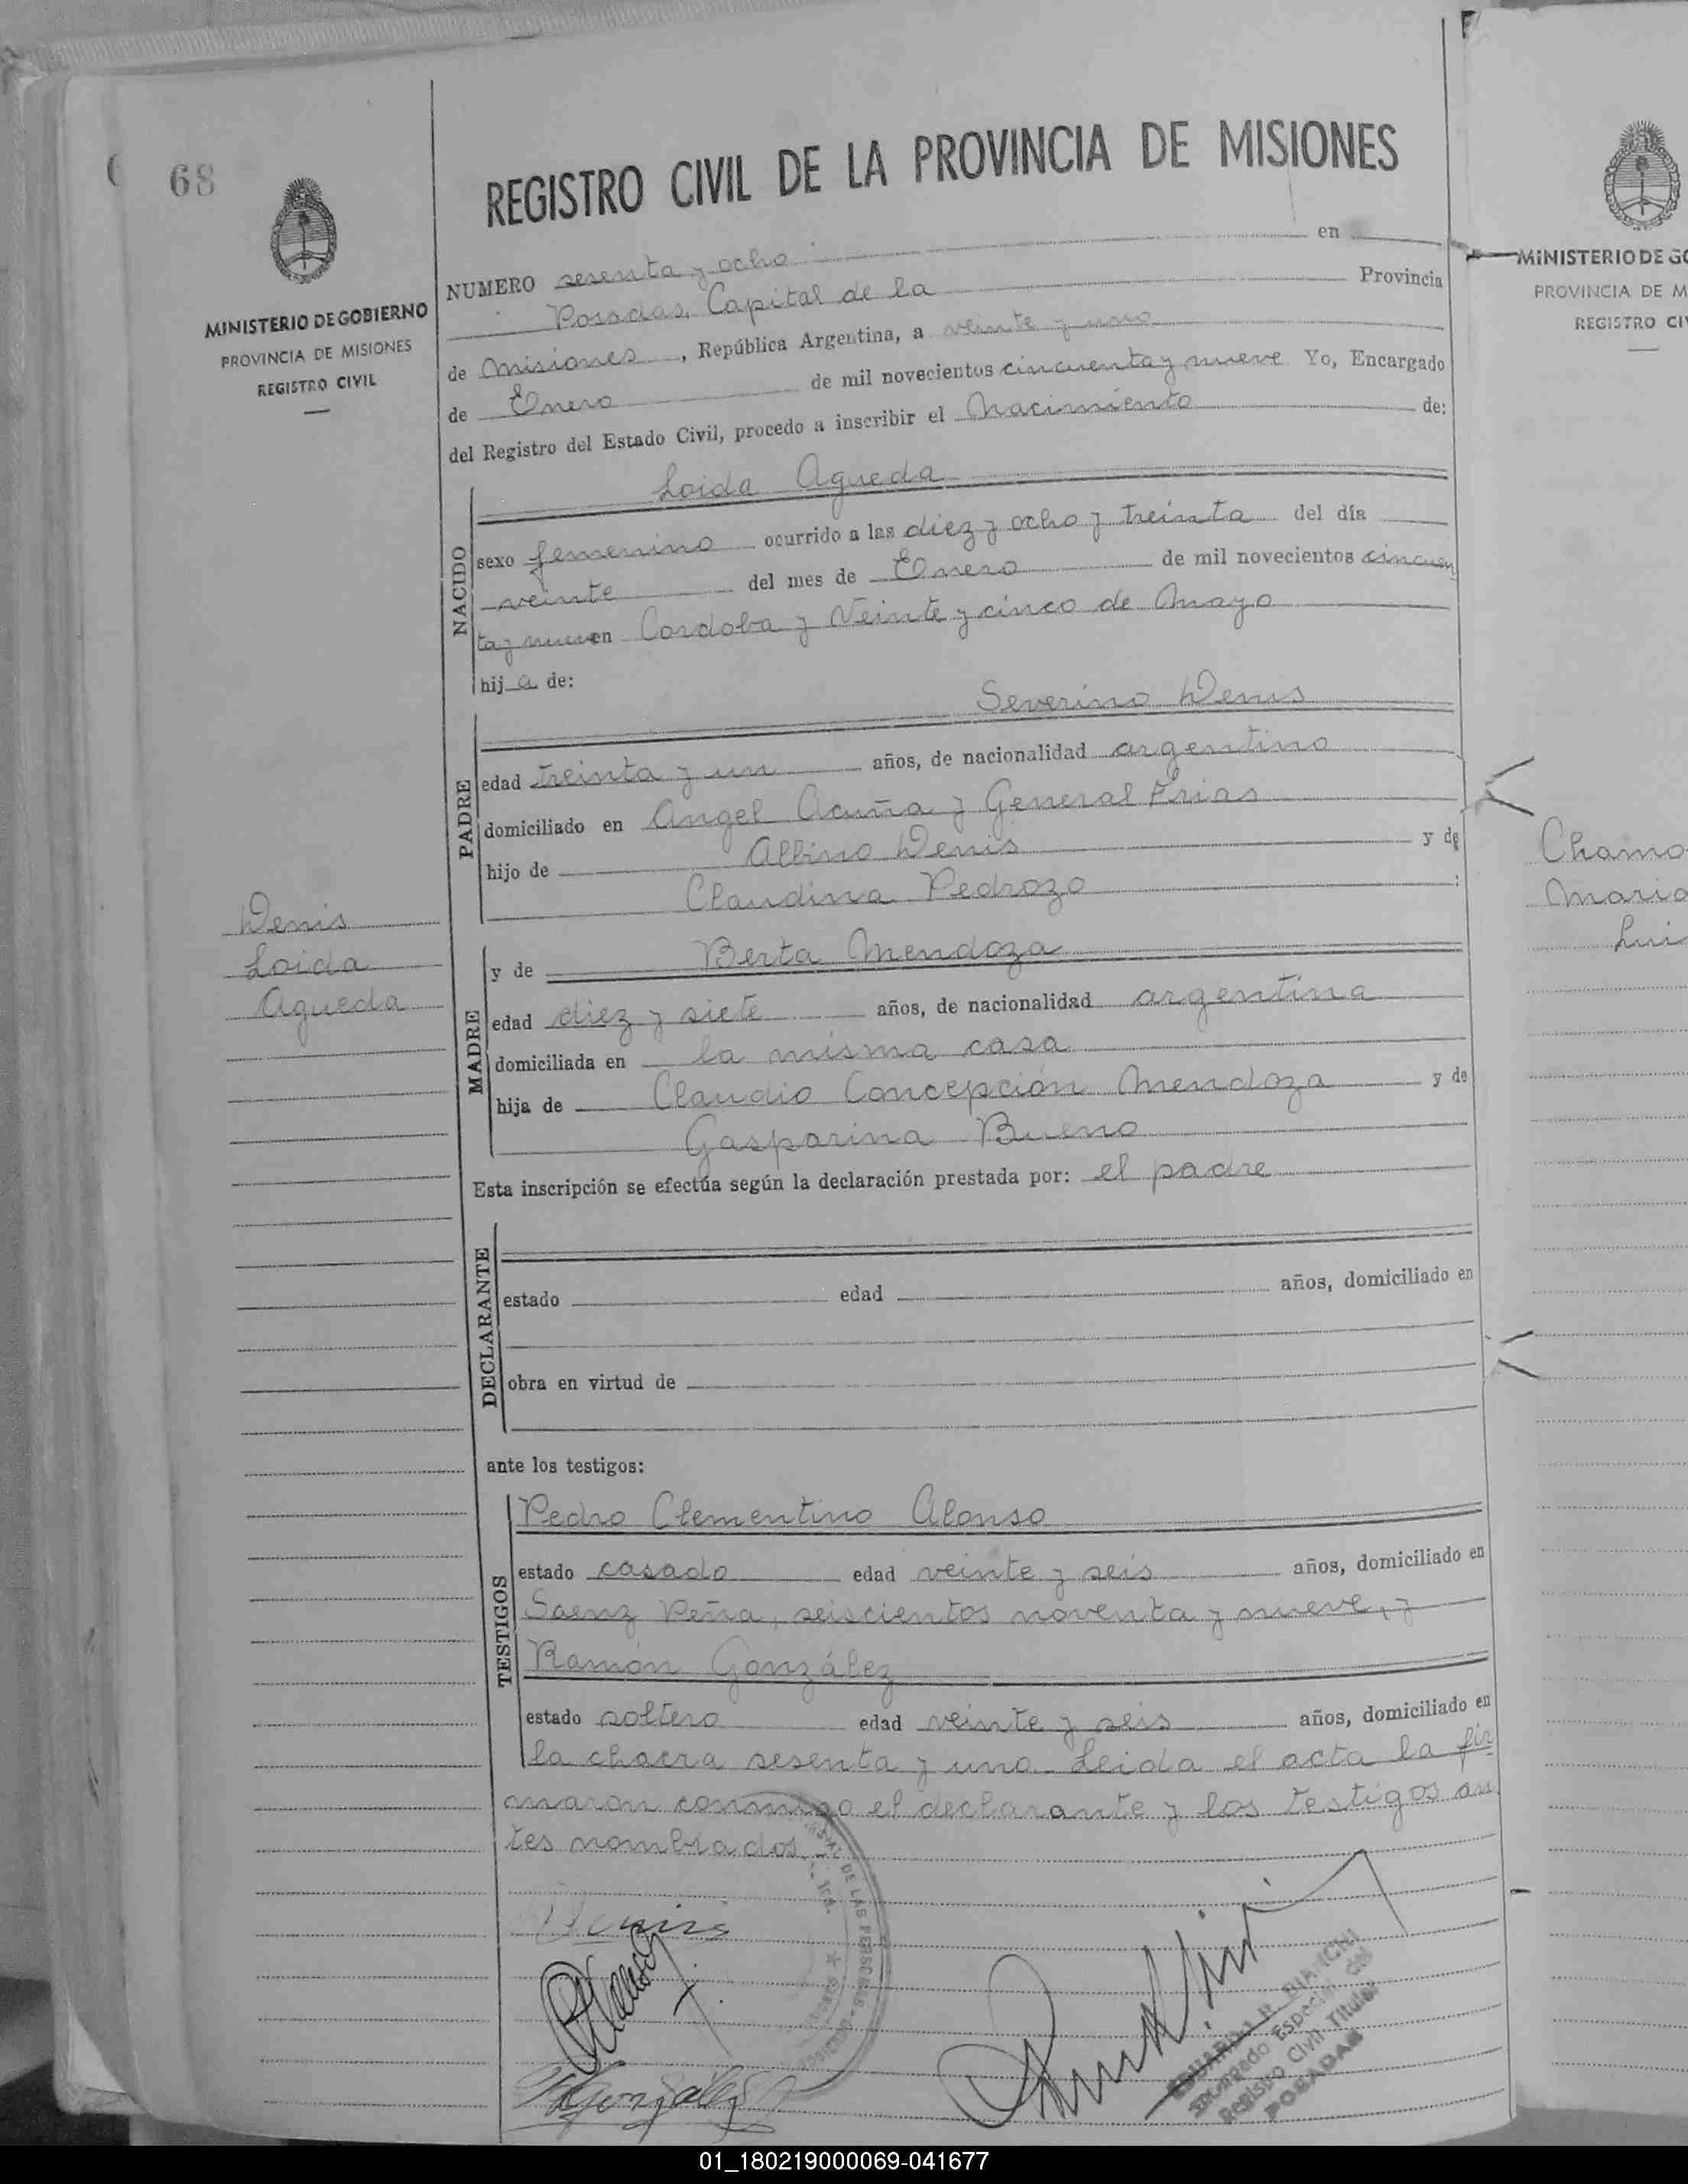 68
MINISTERIO DE GOBIERNO
PROVINCIA DE MISIONES
REGISTRO CIVIL
Denis
Loida
Agueda
REGISTRO CIVIL DE LA PROVINCIA DE MISIONES
NUMERO sesenta y ocho en
Posadas, Capital de la Provincia
de Misiones, República Argentina, a veinte y uno
de Enero de mil novecientos cincuenta y nueve Yo, Encargado
del Registro del Estado Civil, procedo a inscribir el Nacimiento de:
Loida Agueda
NACIDO
sexo femenino ocurrido a las diez y ocho y treinta del día
veinte del mes de Enero de mil novecientos cincuen
ta y nueve en Cordoba y Veinte y cinco de Mayo
hija de:
Severino Denis
PADRE
edad treinta y un años, de nacionalidad argentino
domiciliado en Angel Acuña y General Frias
hijo de Albino Denis y de
Claudina Pedrozo :
MADRE
y de Berta Mendoza
edad diez y siete años, de nacionalidad argentina
domiciliada en la misma casa
hija de Claudio Concepción Mendoza y de
Gasparina Bueno
Esta inscripción se efectúa según la declaración prestada por: el padre
DECLARANTE
estado edad años, domiciliado en
obra en virtud de
ante los testigos:
TESTIGOS
Pedro Clementino Alonso
estado casado edad veinte y seis años, domiciliado en
Saenz Peña, seiscientos noventa y nueve, y
Ramón González
estado soltero edad veinte y seis años, domiciliado en
la chacra sesenta y uno. Leida el acta la fir
maron conmigo el declarante y los testigos an
tes nombrados.-
Denis
RGonzález
DE LAS PERSONAS
EDUARDO R. BIANCHI
Encargado Especial del
Registro Civil Titular
POSADAS
MINISTERIO DE GO
PROVINCIA DE M
REGISTRO CIV
Chamo
Maria
Lui
01_180219000069-041677